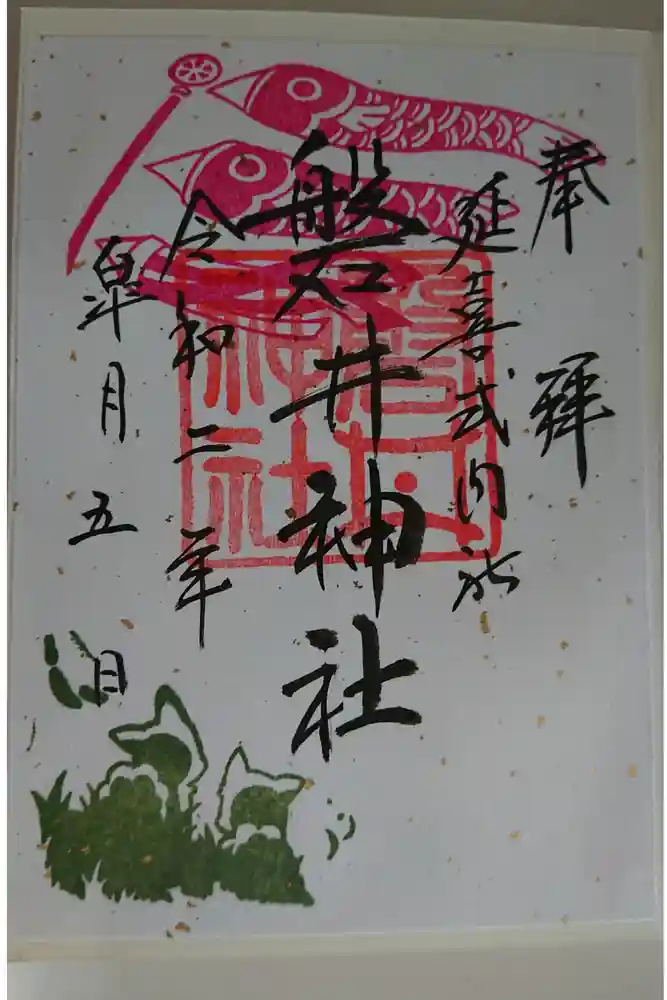 奉拝
延喜式内社
磐井神社
磐井神社
令和二年
皐月五日